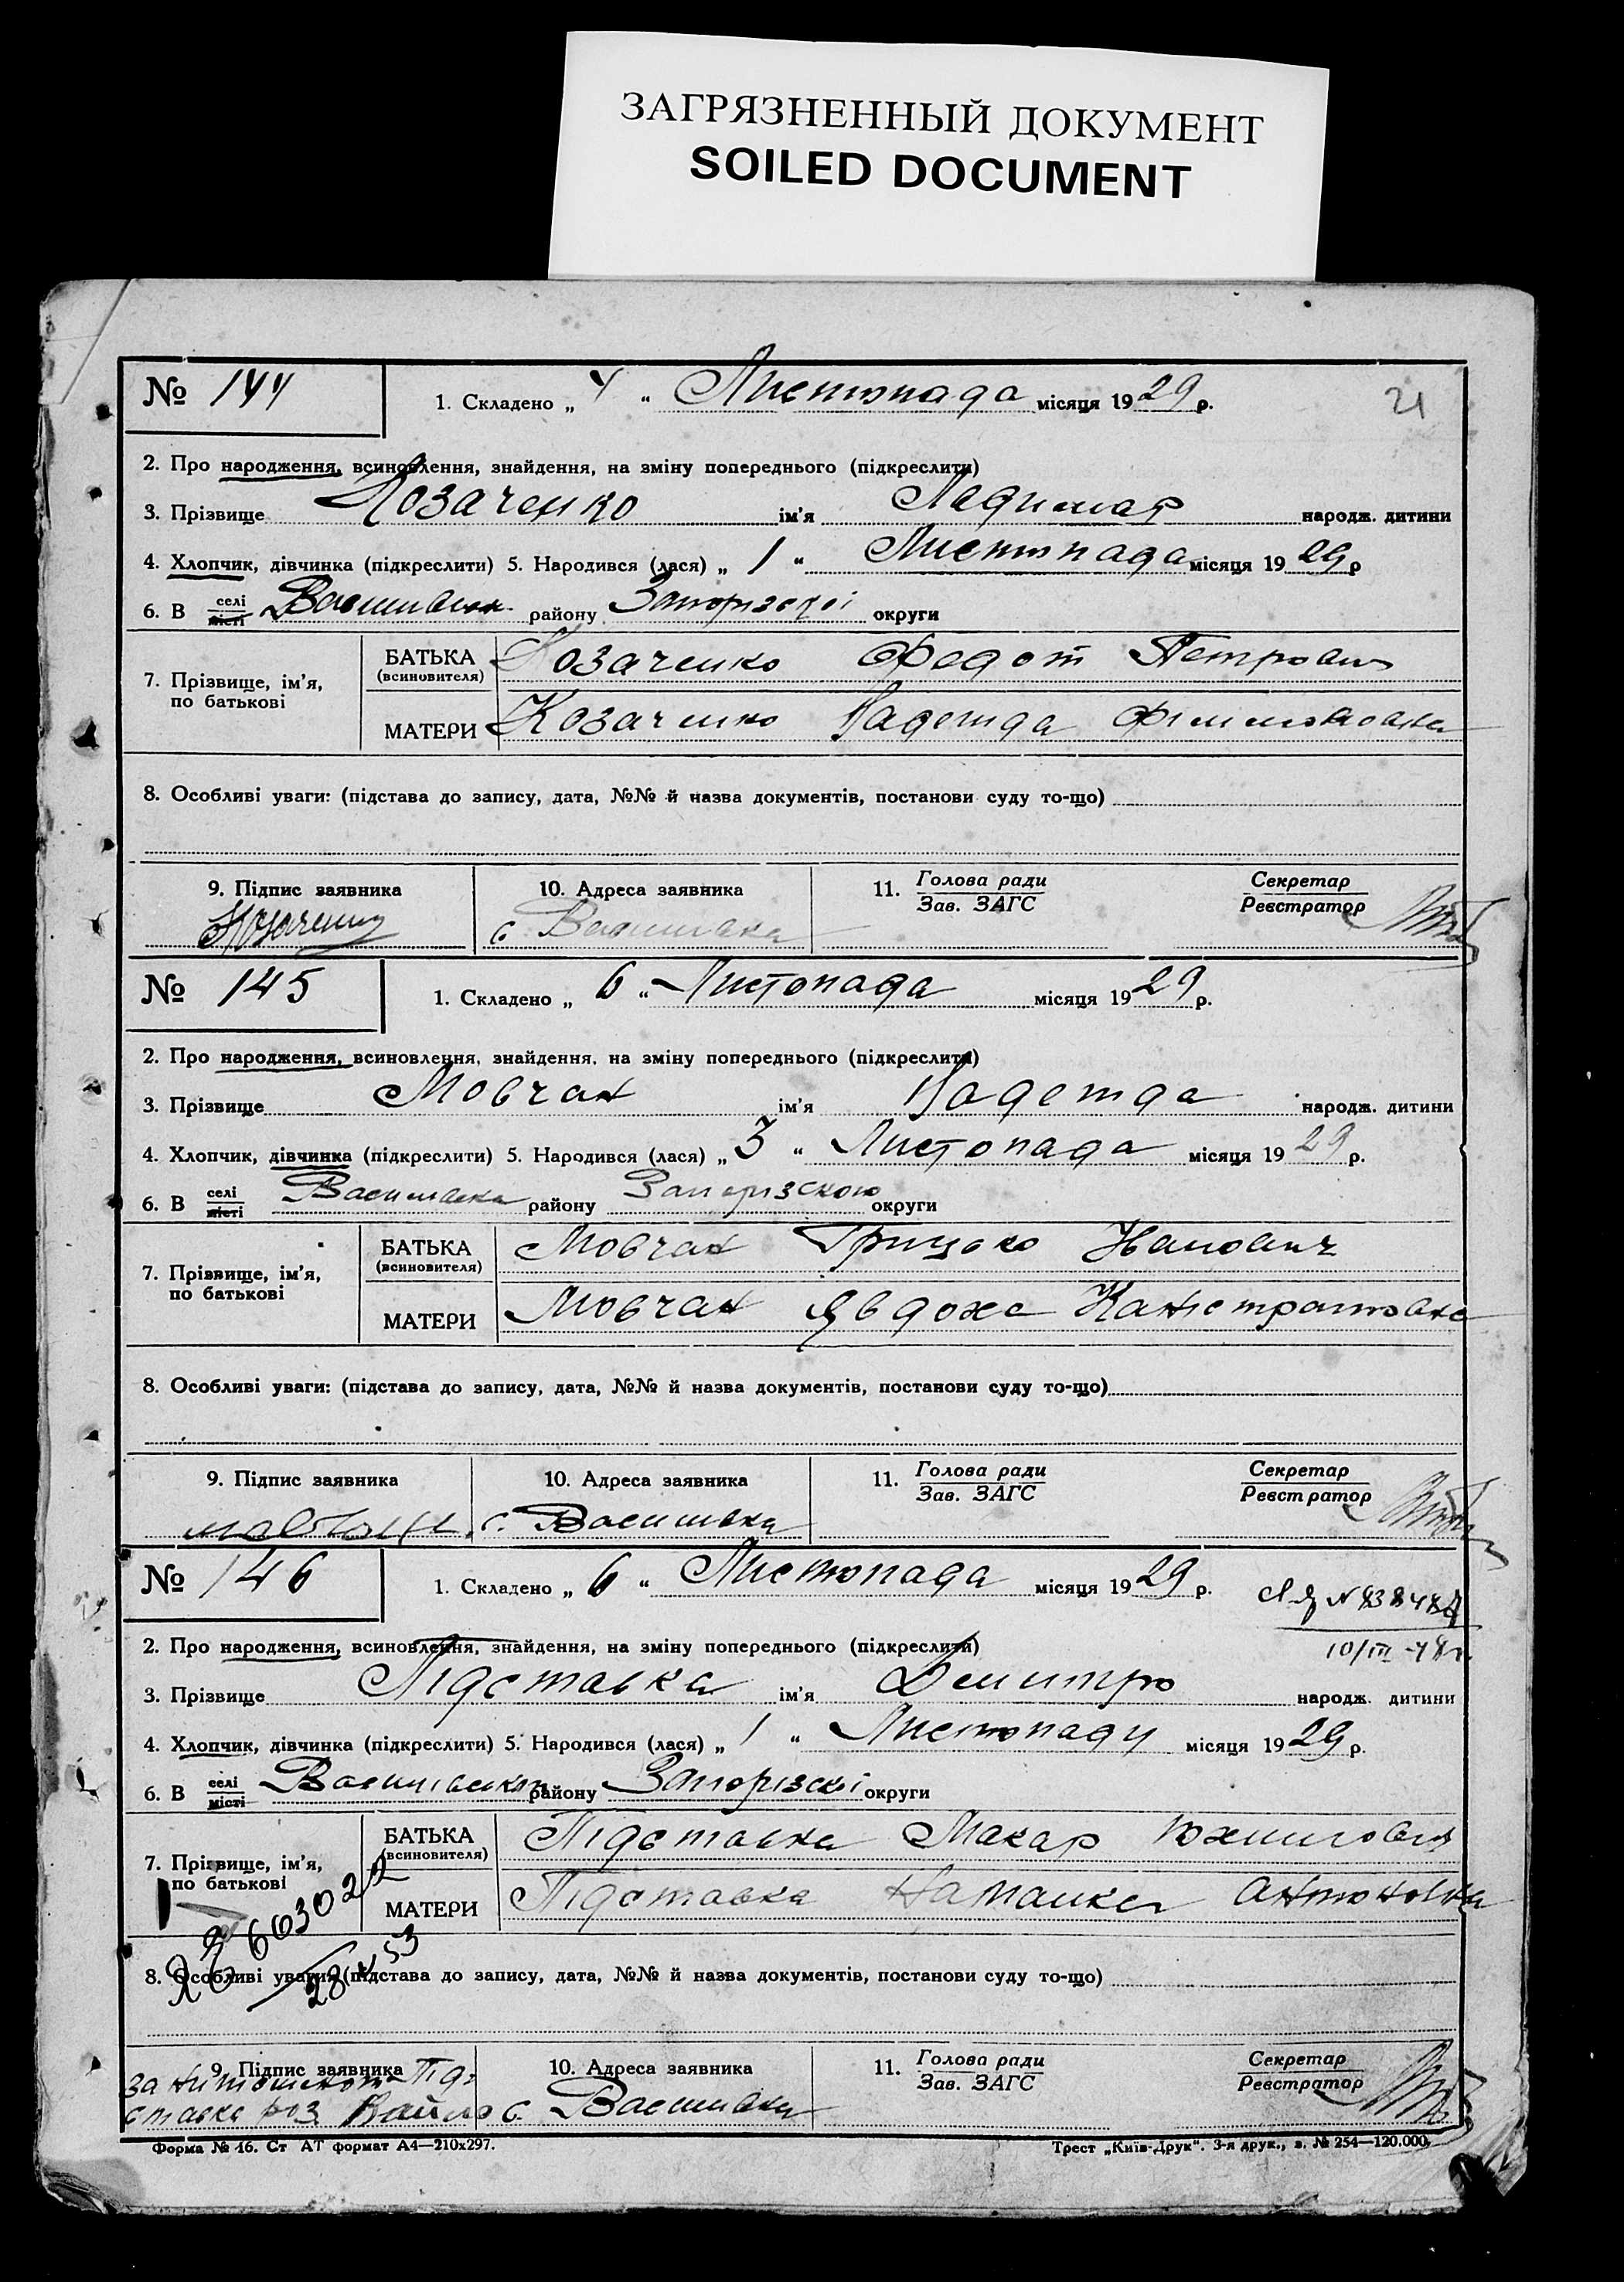 ЗАГРЯЗНЕННЫЙ ДОКУМЕНТ
SOILED DOCUMENT
21
№ 144
1. Складено „ 4 “ Листопада місяця 1929 р.
2. Про народження, всиновлення, знайдення, на зміну попереднього (підкреслити)
3. Прізвище Козаченко ім'я народж. дитини
4. Хлопчик, дівчинка (підкреслити) 5. Народився (лася) „ 1 “ Листопада місяця 1929 р
6. В селі місті району Запорізскої округи
7. Прізвище, ім'я, по батькові
БАТЬКА (всиновителя) Козаченко Федот Петрович
МАТЕРИ Козаченко Надежда
8. Особливі уваги: (підстава до запису, дата, №№ й назва документів, постанови суду то-що)
9. Підпис заявника 10. Адреса заявника 11. Голова ради Зав. ЗАГС Секретар Реєстратор
Козаченко с Василівка
№ 145
1. Складено „ 6 “ Листопада місяця 1929 р.
2. Про народження, всиновлення, знайдення, на зміну попереднього (підкреслити)
3. Прізвище Мовчан ім'я Надежда народж. дитини
4. Хлопчик, дівчинка (підкреслити) 5. Народився (лася) „ 3 “ Листопада місяця 1929 р.
6. В селі місті Василівка району Запорізскою округи
7. Прізвище, ім'я, по батькові
БАТЬКА (всиновителя) Мовчан Грицько Іванович
МАТЕРИ Мовчан Явдоха
8. Особливі уваги: (підстава до запису, дата, №№ й назва документів, постанови суду то-що)
9. Підпис заявника 10. Адреса заявника 11. Голова ради Зав. ЗАГС Секретар Реєстратор
с. Василівка
№ 146
1. Складено „ 6 “ Листопада місяця 1929 р.
2. Про народження, всиновлення, знайдення, на зміну попереднього (підкреслити)
10/III-48г.
3. Прізвище Підставка ім'я Демитро народж. дитини
4. Хлопчик, дівчинка (підкреслити) 5. Народився (лася) „ 1 “ Листопаду місяця 1929 р.
6. В селі місті району Запорізскі округи
7. Прізвище, ім'я, по батькові
БАТЬКА (всиновителя) Підставка Макар
МАТЕРИ Підставка Наталка Антоновна
6603022
8. Особливі уваги: (підстава до запису, дата, №№ й назва документів, постанови суду то-що)
9. Підпис заявника 10. Адреса заявника 11. Голова ради Зав. ЗАГС Секретар Реєстратор
за Під-
ставка с. Василівка
Форма № 16. Ст АТ формат А4—210х297. Трест „Київ-Друк“. 3-я друк., з. № 254—120.000.